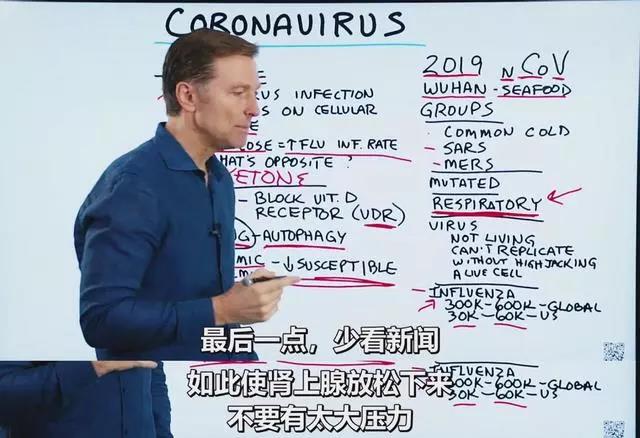 CORONAVIRUS
US INFECTION
S ON CELLULAR
OSE = ↑ FLU INF. RATE
HAT'S OPPOSITE?
KETONE
- BLOCK VIT. D
RECEPTOR (VDR)
- AUTOPHAGY
MIC - ↓ SUSCEPTIBLE
2019 nCoV
WUHAN - SEAFOOD
GROUPS
· COMMON COLD
- SARS
- MERS
MUTATED
RESPIRATORY
VIRUS
NOT LIVING
CAN'T REPLICATE
WITHOUT HIGHJACKING
A LIVE CELL
- INFLUENZA
300K-600K-GLOBAL
30K-60K-US
最后一点，少看新闻
INFLUENZA
300K-600K-GLOBAL
30K-60K-US
如此使肾上腺放松下来
不要有太大压力